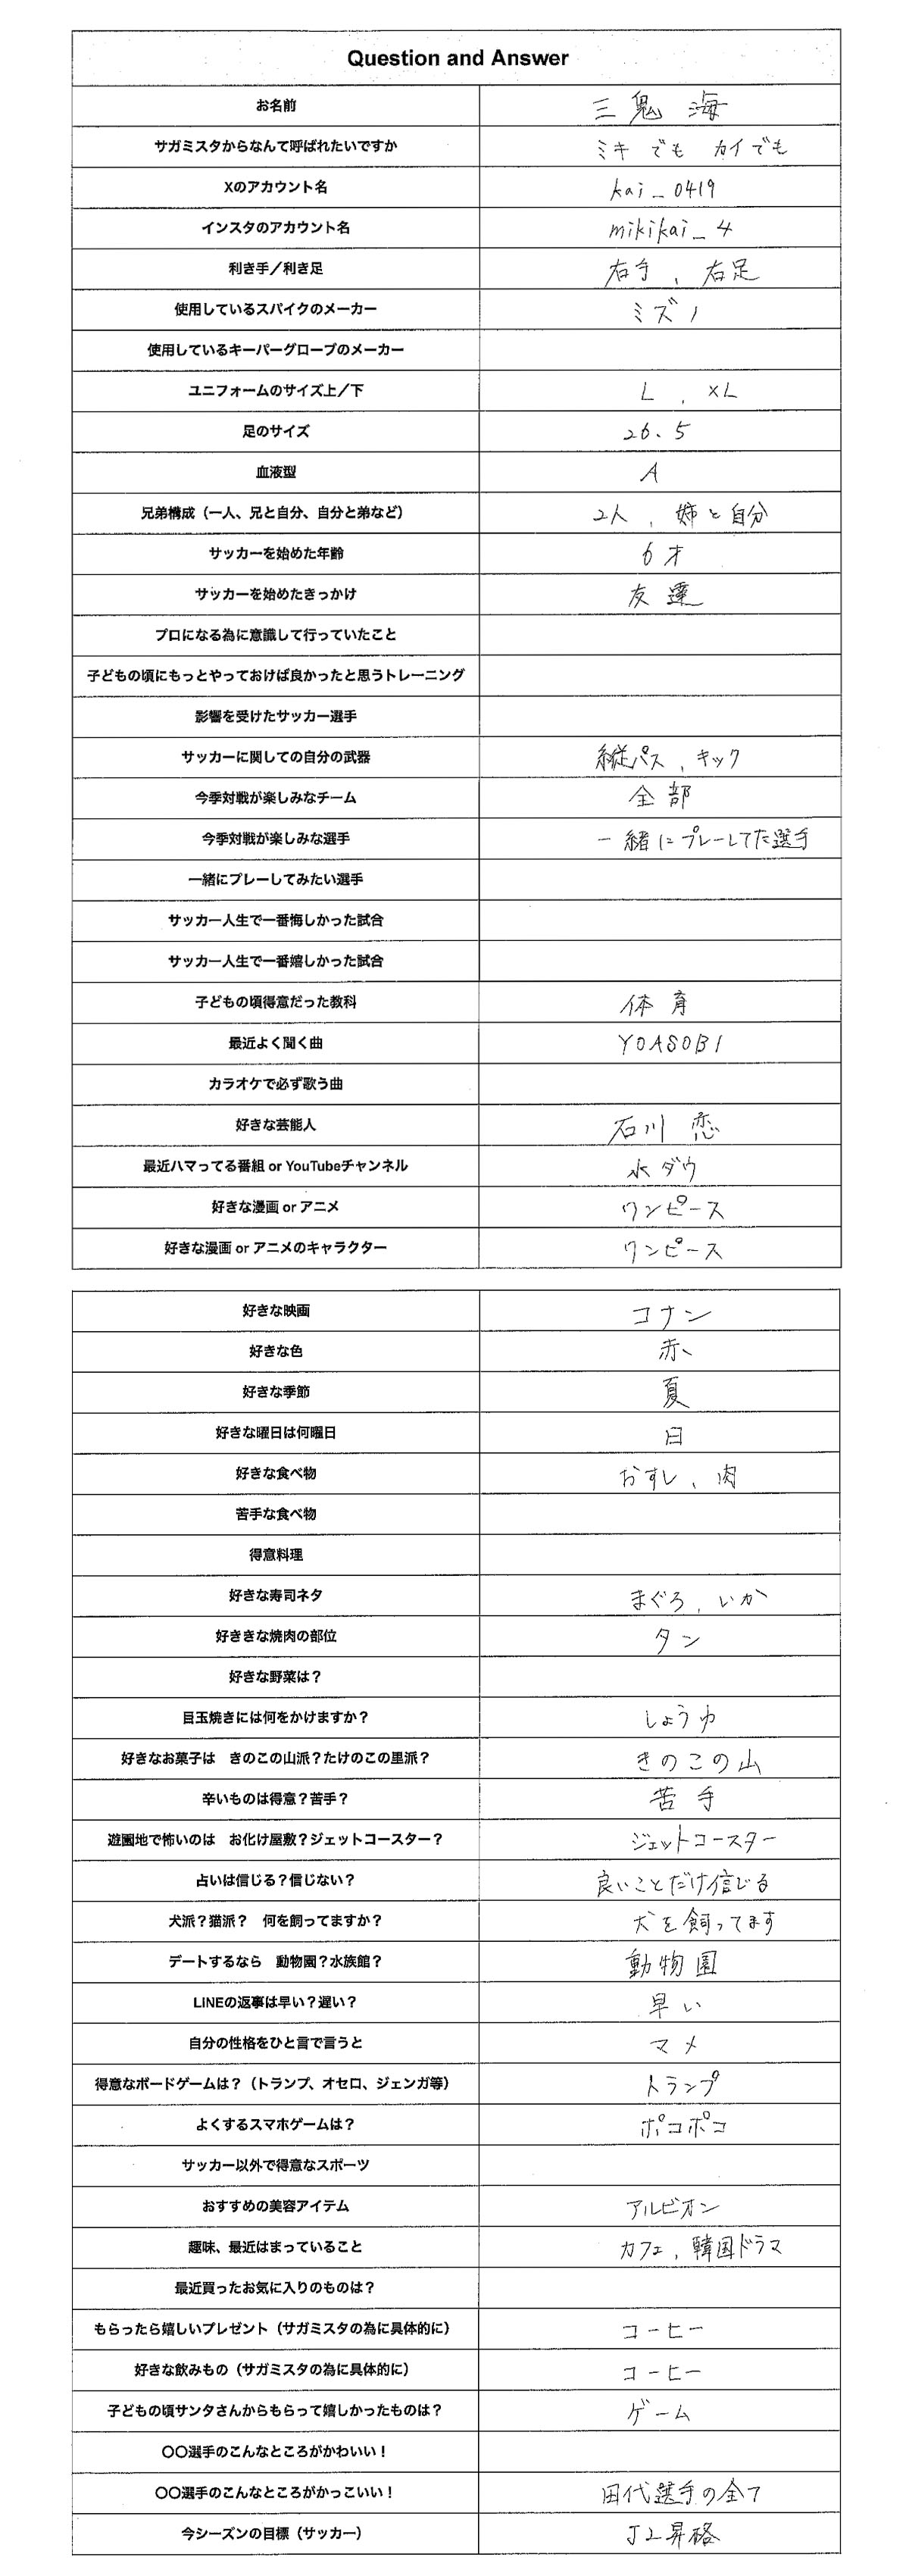 Question and Answer
お名前 三鬼 海
サガミスタからなんて呼ばれたいですか ミキ でも カイ でも
Xのアカウント名 kai_0419
インスタのアカウント名 mikikai_4
利き手／利き足 右手、右足
使用しているスパイクのメーカー ミズノ
使用しているキーパーグローブのメーカー
ユニフォームのサイズ上／下 L、XL
足のサイズ 26.5
血液型 A
兄弟構成（一人、兄と自分、自分と弟など） 2人、姉と自分
サッカーを始めた年齢 6才
サッカーを始めたきっかけ 友達
プロになる為に意識して行っていたこと
子どもの頃にもっとやっておけば良かったと思うトレーニング
影響を受けたサッカー選手
サッカーに関しての自分の武器 縦パス、キック
今季対戦が楽しみなチーム 全部
今季対戦が楽しみな選手 一緒にプレーしてた選手
一緒にプレーしてみたい選手
サッカー人生で一番悔しかった試合
サッカー人生で一番嬉しかった試合
子どもの頃得意だった教科 体育
最近よく聞く曲 YOASOBI
カラオケで必ず歌う曲
好きな芸能人 石川 恋
最近ハマってる番組 or YouTubeチャンネル 水ダウ
好きな漫画 or アニメ ワンピース
好きな漫画 or アニメのキャラクター ワンピース
好きな映画 コナン
好きな色 赤
好きな季節 夏
好きな曜日は何曜日 日
好きな食べ物 おすし、肉
苦手な食べ物
得意料理
好きな寿司ネタ まぐろ、いか
好ききな焼肉の部位 タン
好きな野菜は？
目玉焼きには何をかけますか？ しょうゆ
好きなお菓子は　きのこの山派？たけのこの里派？ きのこの山
辛いものは得意？苦手？ 苦手
遊園地で怖いのは　お化け屋敷？ジェットコースター？ ジェットコースター
占いは信じる？信じない？ 良いことだけ信じる
犬派？猫派？　何を飼ってますか？ 犬を飼ってます
デートするなら　動物園？水族館？ 動物園
LINEの返事は早い？遅い？ 早い
自分の性格をひと言で言うと マメ
得意なボードゲームは？（トランプ、オセロ、ジェンガ等） トランプ
よくするスマホゲームは？ ポコポコ
サッカー以外で得意なスポーツ
おすすめの美容アイテム アルビオン
趣味、最近はまっていること カフェ、韓国ドラマ
最近買ったお気に入りのものは？
もらったら嬉しいプレゼント（サガミスタの為に具体的に） コーヒー
好きな飲みもの（サガミスタの為に具体的に） コーヒー
子どもの頃サンタさんからもらって嬉しかったものは？ ゲーム
〇〇選手のこんなところがかわいい！
〇〇選手のこんなところがかっこいい！ 田代選手の全て
今シーズンの目標（サッカー） J2昇格